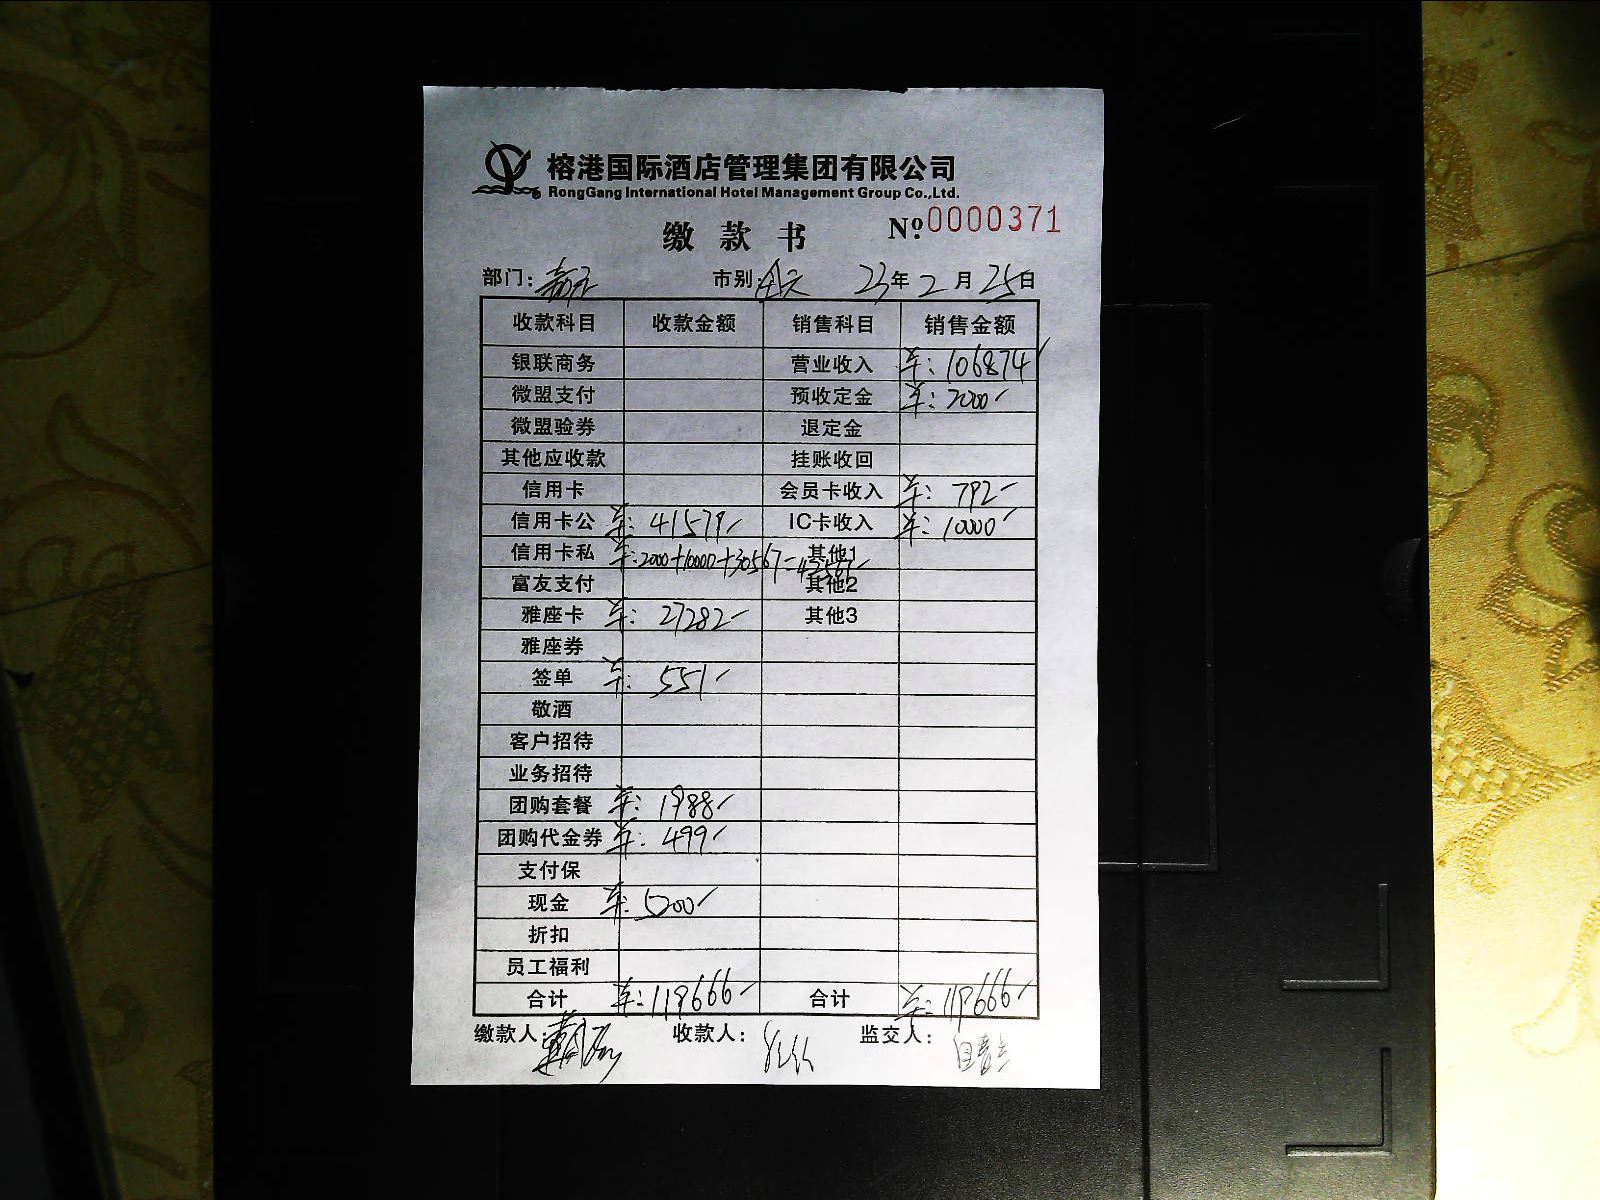 榕港国际酒店管理集团有限公司
RongGang International Hotel Management Group Co.,Ltd.
缴款书 Nº 0000371
部门: 市别:全天 23年2月25日
收款科目 收款金额 销售科目 销售金额
银联商务 营业收入 ¥:106874
微盟支付 预收定金 ¥:2000
微盟验券 退定金
其他应收款 挂账收回
信用卡 会员卡收入 ¥:792
信用卡公 ¥:41579 IC卡收入 ¥:10000
信用卡私 ¥:2000+10000+30567=42567 其他1
富友支付 其他2
雅座卡 ¥:27282 其他3
雅座券
签单 ¥:551
敬酒
客户招待
业务招待
团购套餐 ¥:1988
团购代金券 ¥:499
支付保
现金 ¥:5200
折扣
员工福利
合计 ¥:119666 合计 ¥:119666
缴款人: 收款人: 监交人: